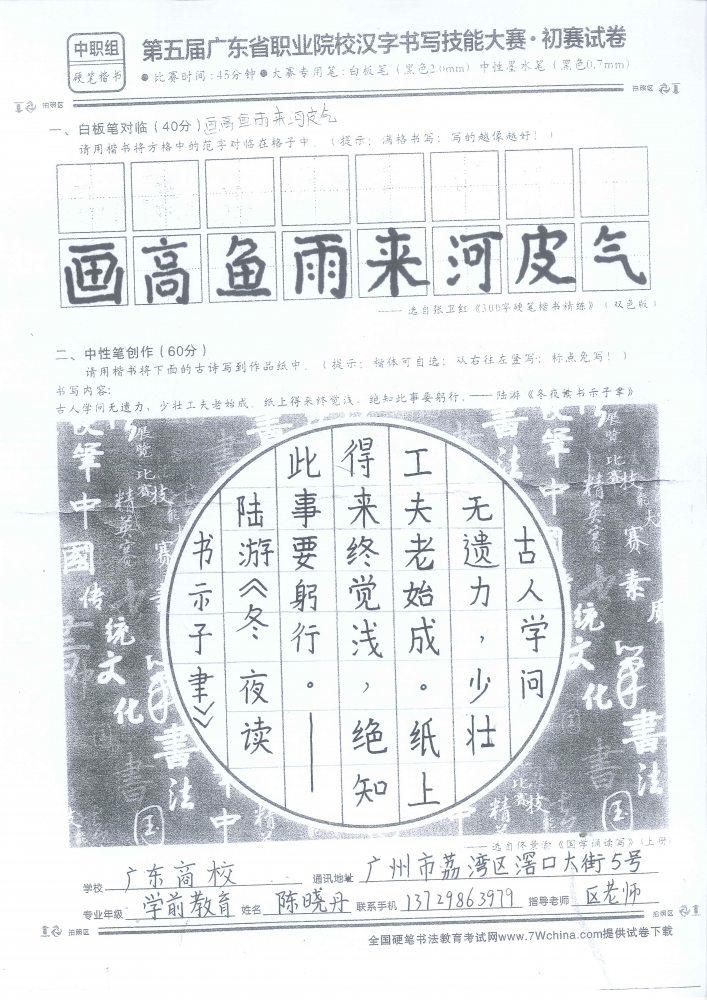 中职组
硬笔楷书
第五届广东省职业院校汉字书写技能大赛·初赛试卷
●比赛时间:45分钟●大赛专用笔:白板笔(黑色2.0mm)中性墨水笔(黑色0.7mm)
拍照区
拍照区
一、白板笔对临(40分)画高鱼雨来河皮气
请用楷书将方格中的范字对临在格子中。(提示:满格书写;写的越像越好!)
画高鱼雨来河皮气
——选自张卫红《300字硬笔楷书精练》(双色版)
二、中性笔创作(60分)
请用楷书将下面的古诗写到作品纸中。(提示:楷体可自选;从右往左竖写;标点免写!)
书写内容:
古人学问无遗力,少壮工夫老始成。纸上得来终觉浅,绝知此事要躬行。——陆游《冬夜读书示子聿》
古人学问
无遗力,少壮
工夫老始成。纸上
得来终觉浅,绝知
此事要躬行。——
陆游《冬夜读
书示子聿》
——选自佟景渝《国学诵读写》(上册)
学校 广东高校 通讯地址 广州市荔湾区滘口大街5号
专业年级 学前教育 姓名 陈晓丹 联系手机 13729863979 指导老师 区老师
拍照区
拍照区
全国硬笔书法教育考试网www.7Wchina.com提供试卷下载